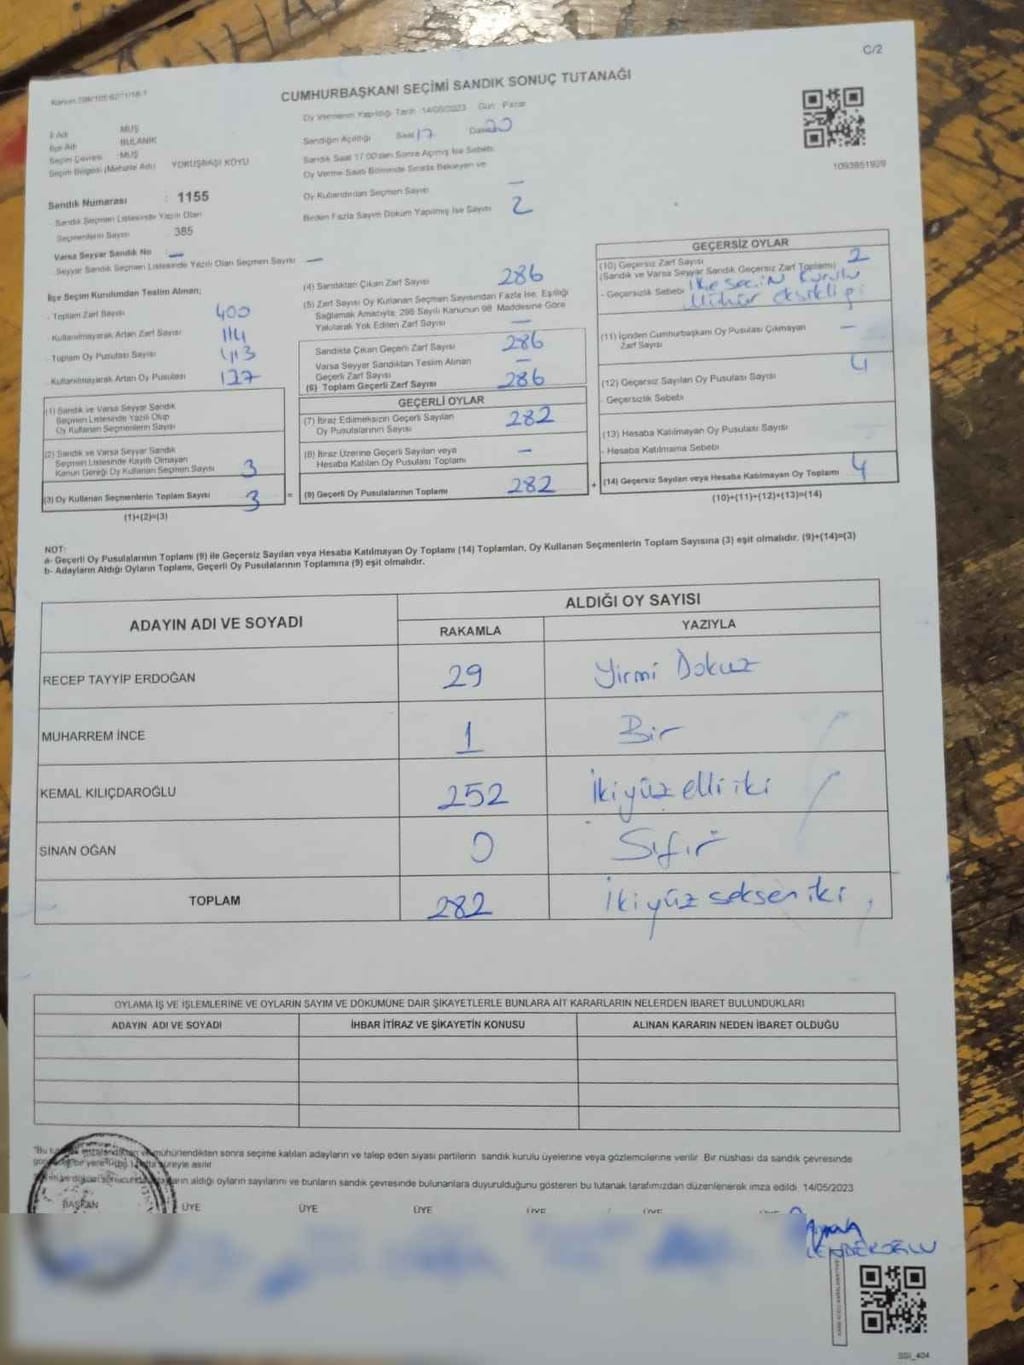 C/2
CUMHURBAŞKANI SEÇİMİ SANDIK SONUÇ TUTANAĞI
İl Adı : MUŞ
İlçe Adı : BULANIK
Seçim Çevresi : MUŞ
Seçim Bölgesi (Mahalle Adı) YOKUŞBAŞI KÖYÜ
Sandık Numarası : 1155
Sandık Seçmen Listesinde Yazılı Olan
Seçmenlerin Sayısı : 385
Varsa Seyyar Sandık No : —
Seyyar Sandık Seçmen Listesinde Yazılı Olan Seçmen Sayısı —
Oy Vermenin Yapıldığı Tarih : 14/05/2023 Gün : Pazar
Sandığın Açıldığı Saat 17 Dakika 20
Sandık Saat 17:00'den Sonra Açılmış İse Sebebi:
Oy Verme Saati Bitiminde Sırada Bekleyen ve
Oy Kullandırılan Seçmen Sayısı —
Birden Fazla Sayım Döküm Yapılmış İse Sayısı 2
1093851929
İlçe Seçim Kurulundan Teslim Alınan;
- Toplam Zarf Sayısı 400
- Kullanılmayarak Artan Zarf Sayısı 114
- Toplam Oy Pusulası Sayısı 413
- Kullanılmayarak Artan Oy Pusulası 127
(1) Sandık ve Varsa Seyyar Sandık
Seçmen Listesinde Yazılı Olup
Oy Kullanan Seçmenlerin Sayısı
(2) Sandık ve Varsa Seyyar Sandık
Seçmen Listesinde Kayıtlı Olmayan
Kanun Gereği Oy Kullanan Seçmen Sayısı 3
(3) Oy Kullanan Seçmenlerin Toplam Sayısı 3
(1)+(2)=(3)
(4) Sandıktan Çıkan Zarf Sayısı 286
(5) Zarf Sayısı Oy Kullanan Seçmen Sayısından Fazla İse, Eşitliği
Sağlamak Amacıyla; 298 Sayılı Kanunun 98. Maddesine Göre
Yakılarak Yok Edilen Zarf Sayısı —
Sandıkta Çıkan Geçerli Zarf Sayısı 286
Varsa Seyyar Sandıktan Teslim Alınan
Geçerli Zarf Sayısı —
(6) Toplam Geçerli Zarf Sayısı 286
GEÇERLİ OYLAR
(7) İtiraz Edilmeksizin Geçerli Sayılan
Oy Pusulalarının Sayısı 282
(8) İtiraz Üzerine Geçerli Sayılan veya
Hesaba Katılan Oy Pusulası Toplamı —
= (9) Geçerli Oy Pusulalarının Toplamı 282
GEÇERSİZ OYLAR
(10) Geçersiz Zarf Sayısı 2
(Sandık ve Varsa Seyyar Sandık Geçersiz Zarf Toplamı)
- Geçersizlik Sebebi seçim kurulu
Mühür eksikliği
(11) İçinden Cumhurbaşkanı Oy Pusulası Çıkmayan
Zarf Sayısı —
(12) Geçersiz Sayılan Oy Pusulası Sayısı 4
- Geçersizlik Sebebi
(13) Hesaba Katılmayan Oy Pusulası Sayısı
- Hesaba Katılmama Sebebi
+ (14) Geçersiz Sayılan veya Hesaba Katılmayan Oy Toplamı 4
(10)+(11)+(12)+(13)=(14)
NOT:
a- Geçerli Oy Pusulalarının Toplamı (9) ile Geçersiz Sayılan veya Hesaba Katılmayan Oy Toplamı (14) Toplamları, Oy Kullanan Seçmenlerin Toplam Sayısına (3) eşit olmalıdır. (9)+(14)=(3)
b- Adayların Aldığı Oyların Toplamı, Geçerli Oy Pusulalarının Toplamına (9) eşit olmalıdır.
ADAYIN ADI VE SOYADI ALDIĞI OY SAYISI
RAKAMLA YAZIYLA
RECEP TAYYİP ERDOĞAN 29 Yirmi Dokuz
MUHARREM İNCE 1 Bir
KEMAL KILIÇDAROĞLU 252 İkiyüz elli iki
SİNAN OĞAN 0 Sıfır
TOPLAM 282 İkiyüz seksen iki
OYLAMA İŞ VE İŞLEMLERİNE VE OYLARIN SAYIM VE DÖKÜMÜNE DAİR ŞİKAYETLERLE BUNLARA AİT KARARLARIN NELERDEN İBARET BULUNDUKLARI
ADAYIN ADI VE SOYADI İHBAR İTİRAZ VE ŞİKAYETİN KONUSU ALINAN KARARIN NEDEN İBARET OLDUĞU
mühürlendikten sonra seçime katılan adayların ve talep eden siyasi partilerin sandık kurulu üyelerine veya gözlemcilerine verilir. Bir nüshası da sandık çevresinde
süreyle asılır
aldığı oyların sayılarını ve bunların sandık çevresinde bulunanlara duyurulduğunu gösteren bu tutanak tarafımızdan düzenlenerek imza edildi. 14/05/2023
BAŞKAN ÜYE ÜYE ÜYE ÜYE ÜYE
SSİ_404